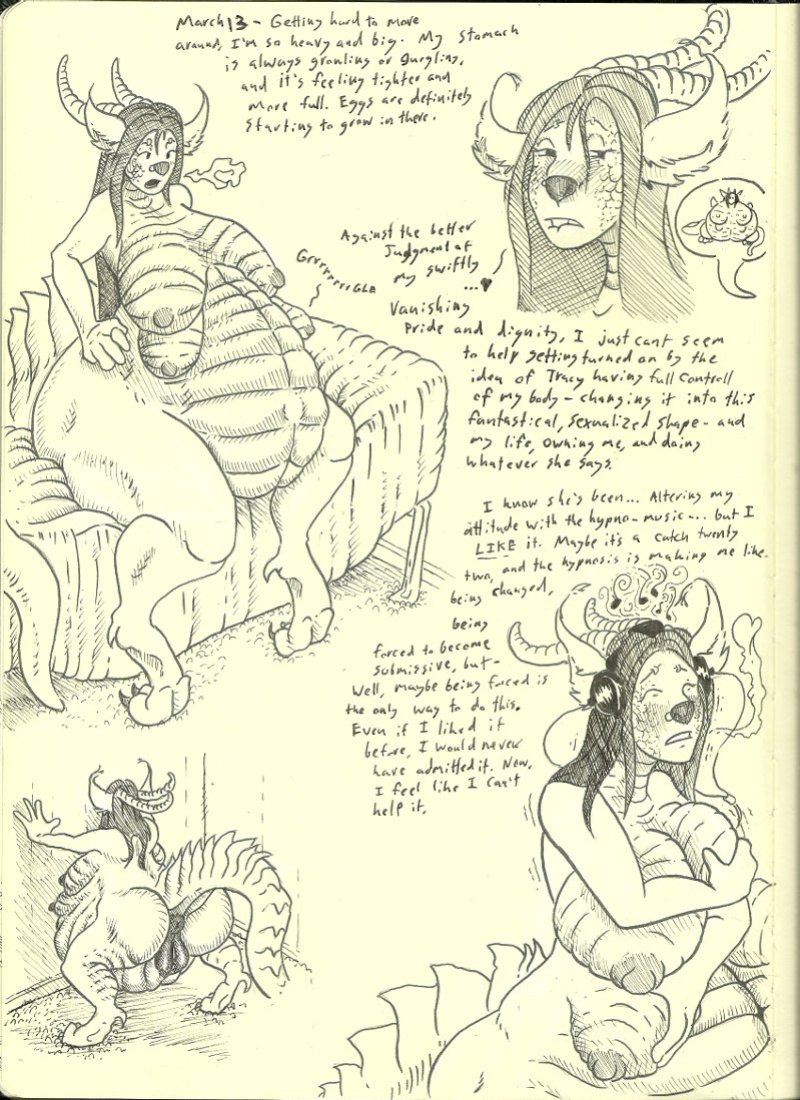 March 13 - Getting hard to move
around, I'm so heavy and big. My stomach
is always growling or gurgling,
and it's feeling tighter and
more full. Eggs are definitely
starting to grow in there.
Grrrrrrgle
Against the better
Judgment of
my swiftly
...♥
Vanishing
pride and dignity, I just cant seem
to help getting turned on by the
idea of Tracy having full controll
of my body - changing it into this
fantastical, sexualized shape - and
my life, owning me, and doing
whatever she says.
I know she's been... Altering my
attitude with the hypno-music... but I
LIKE it. Maybe it's a catch twenty
two, and the hypnosis is making me like
being changed,
being
forced to become
submissive, but-
well, maybe being forced is
the only way to do this.
Even if I liked it
before, I would never
have admitted it. Now,
I feel like I can't
help it.